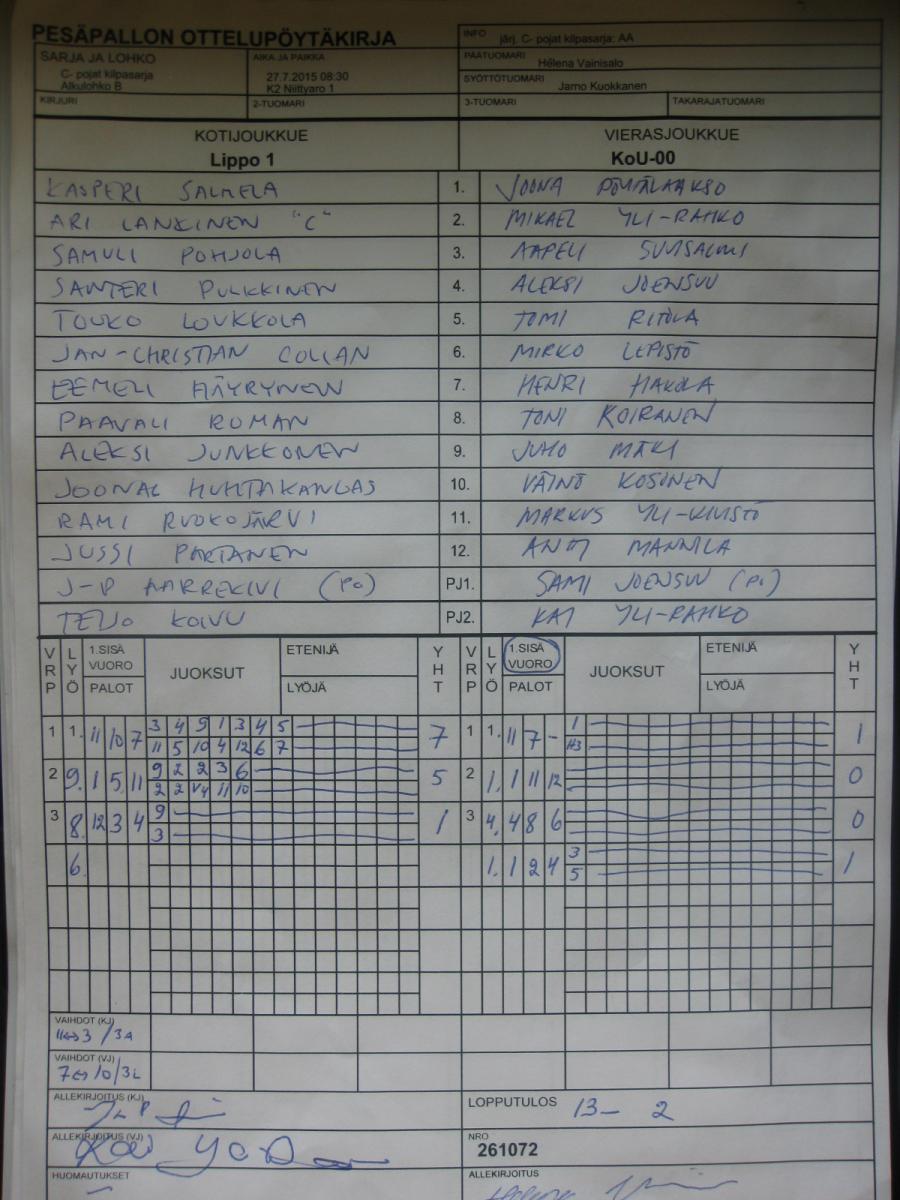 PESÄPALLON OTTELUPÖYTÄKIRJA
INFO järj. C- pojat kilpasarja: AA
SARJA JA LOHKO
C- pojat kilpasarja
Alkulohko B
AIKA JA PAIKKA
27.7.2015 08:30
K2 Niittyaro 1
PÄÄTUOMARI
Helena Vainisalo
SYÖTTÖTUOMARI
Jarno Kuokkanen
KIRJURI
2-TUOMARI
3-TUOMARI
TAKARAJATUOMARI
KOTIJOUKKUE
Lippo 1
VIERASJOUKKUE
KoU-00
KASPERI SALMELA 1. JOONA PÖYTÄLAAKSO
ARI LANKINEN "C" 2. MIKAEL YLI-RAHKO
SAMULI POHJOLA 3. AAPELI SUVISALMI
SANTERI PULKKINEN 4. ALEKSI JOENSUU
TOUKO LOUKKOLA 5. TOMI RITOLA
JAN-CHRISTIAN COLLAN 6. MIRKO LEPISTÖ
EEMELI HÄYRYNEN 7. HENRI HAKOLA
PAAVALI ROMAN 8. TONI KOIRANEN
ALEKSI JUNKKONEN 9. JUHO MÄKI
JOONAL HUHTAKANGAS 10. VÄINÖ KOSONEN
RAMI RUOKOJÄRVI 11. MARKUS YLI-KIVISTÖ
JUSSI PARTANEN 12. MANNILA
J-P AARREKIVI (PO) PJ1. SAMI JOENSUU
TEIJO KOIVU PJ2. KAI YLI-RAHKO
VRP LYÖ 1.SISÄ VUORO PALOT JUOKSUT ETENIJÄ LYÖJÄ YHT VRP LYÖ 1.SISÄ VUORO PALOT JUOKSUT ETENIJÄ LYÖJÄ YHT
1 1. 11 10 7 3 4 9 1 3 4 5 7 1 1. 11 7 - 1 1
11 5 10 4 12 6 7
2 9. 1 5 11 9 2 2 3 6 5 2 1. 1 11 12 0
2 2 11 10
3 8. 12 3 4 9 1 3 4. 4 8 6 0
3
6. 1. 1 2 4 3 1
5
VAIHDOT (KJ)
11↔3 /3A
VAIHDOT (VJ)
7↔10/3L
ALLEKIRJOITUS (KJ)
LOPPUTULOS 13- 2
ALLEKIRJOITUS (VJ)
NRO
261072
HUOMAUTUKSET
ALLEKIRJOITUS